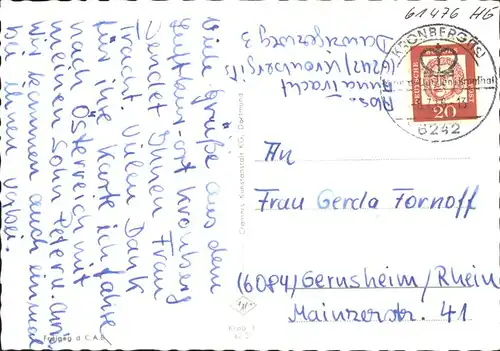 61476 HG
Abs. Anna Tracht
(6242) Kronberg/Ts
Danzigerweg 3
KRONBERG (TS)
6242
DEUTSCHE
20
Viele Grüße aus dem
Luftkur-ort Kronberg
sendet Ihnen Frau
Tracht. Vielen Dank
für ihre Karte ich fahre
nach Österreich mit
meinen Sohn Peter u.
wir kommen auch einmal
bei ihnen vorbei.
Cramers Kunstanstalt KG, Dortmund
An
Frau Gerda Fornoff
(6084) Gernsheim/Rhein
Mainzerstr. 41